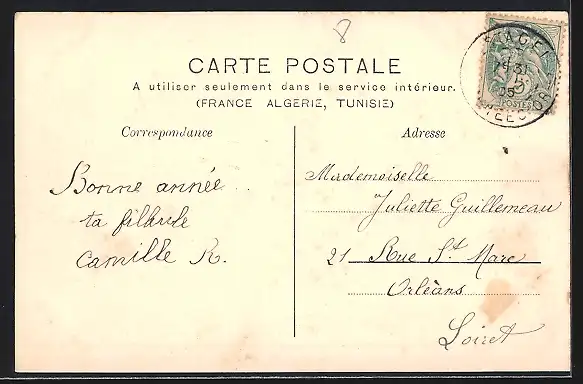 8
CARTE POSTALE
A utiliser seulement dans le service intérieur.
(FRANCE ALGERIE, TUNISIE)
Correspondance
Adresse
POSTES
Bonne année..
ta filleule
Camille R.
Mademoiselle
Juliette Guillemeau
21 Rue St. Marc
Orléans
Loiret